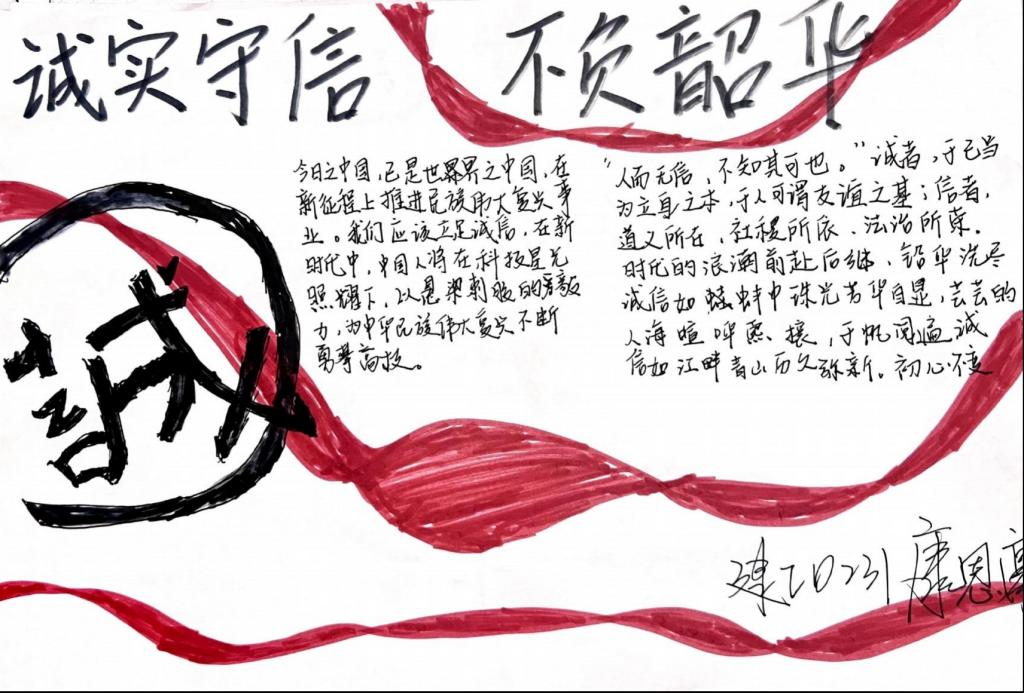 诚实守信 不负韶华
誠
今日之中国，已是世界界之中国，在
新征程上推进民族伟大复兴事
业。我们应该立足诚信，在新
时代中，中国人将在科技星光
照耀下，以悬梁刺股的毅
力，为中华民族伟大复兴不断
勇攀高枝。
“人而无信，不知其可也。”诚者，于己当
为立身之本，于人可谓友谊之基；信者，
道义所在，社稷所依、法治所荣。
时代的浪涛前赴后继，铅华洗尽
诚信如蛙蚌中珠光芳华自显，芸芸的
人海喧哗熙攘，于帆阅遍诚
信如江畔青山历久弥新。初心不变
建工20231康恩